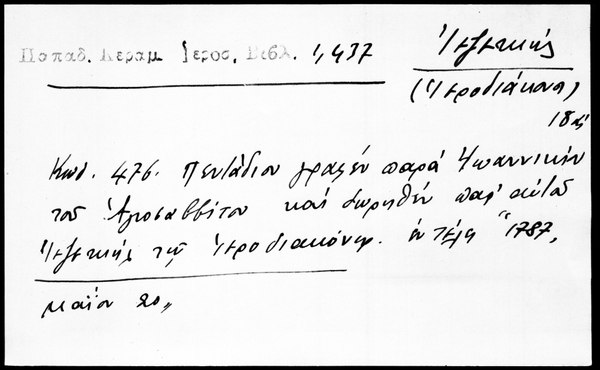 Παπαδ. Κεραμ. Ιεροσ. Βιβλ. 1,437
Ἰεζεκιὴλ
(Ἱεροδιάκονος)
18ος
Κωδ. 476. Πεντάδιον γραφέν παρά Ἰωαννικίου
τοῦ Ἁγιοσαββίτου καί δωρηθέν παρ' αὐτοῦ
Ἰεζεκιὴλ τῷ Ἱεροδιακόνῳ. ἐν τέλει "1787,
μαΐου 20,,